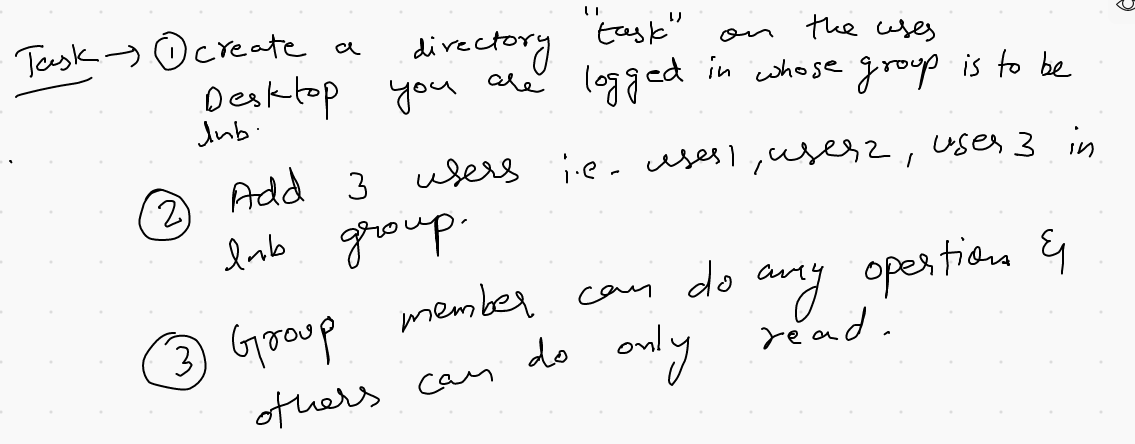 Task → ① create a directory "task" on the user
Desktop you are logged in whose group is to be
lnb.
② Add 3 users i.e. user1, user2, user3 in
lnb group.
③ Group member can do any opertion &
others can do only read.